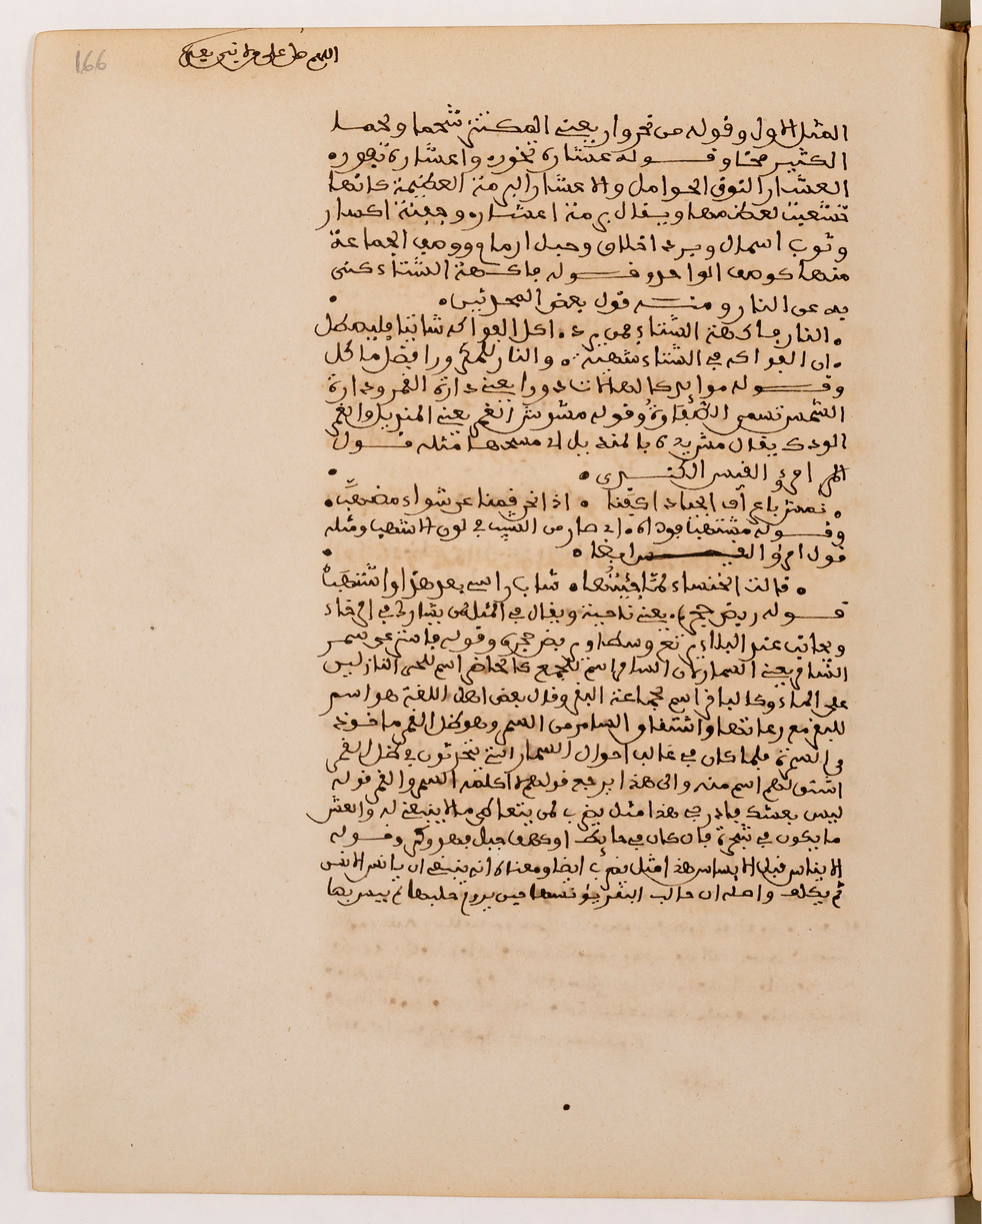 166
اللهم صل على من لا نبي بعده
المثل الاول وقوله من نحر واري يعني المكتنز شحما ولحما
الكثير مخا وقـــوله عشاره تخور واعشاره تفور
العشار النوق الحوامل والاعشار البرمة العظيمة كانها
تشعبت لعظمها ويقال برمة اعشار وجفنة اكسار
وثوب اسمال وبرد اخلاق وحبل ارمام ووصف الجماعة
منها كوصف الواحد وقـــوله فاكهة الشتاء كنى
به عن النار ومنـــه قول بعض المحدثين
النار فاكهة الشتاء فمن يرد اكل الفواكه شاتيا فليصطل
ان الفواكه في الشتاء شهية والنار للمقرور افضل ماكل
وقـــوله موايد كالهالات دورا يعني دارة القمر ودارة
الشمس تسمى الطفاوة وقوله مشوش الغمر يعني المنديل والغمر
الودك يقال مش يده بالمنديل اي مسحها مثله قـــول
امرؤ القيس الكنـــدى
نمش باعراف الجياد اكفنا اذا نحن قمنا عن شواء مضهب
وقـــوله مشتهبا فوداه اي صار من الشيب في لون الاشهب ومثله
قول امرؤ القيـــس ايضا
قالت الخنساء لما جئتها شاب راسي بعد هذا واشتهب
قـــوله ربض حجرة يعني ناحية ويقال في المثل لمن يشارك في الرخاء
ويجانب عند البلاء يرتع وسطا ويربض حجرة وقوله فاستر عى سمر
السامر يعني السمار لان السامر اسم للجمع كالحاضر اسم للحي النازلين
على الماء وكالباقر اسم لجماعة البقر وقال بعض اهل اللغة هو اسم
للبقر مع رعاتها واشتقاق السامر من السمر وهو ظل القمر ماخوذ
من السمرة فلما كان في غالب احوال السمار انهم يتحدثون في ظل القمر
اشتق لهم اسم منه والى هذا يرجع قولهم لا اكلمه السمر والقمر قوله
ليس بعشك فادرجي هذا مثل يضرب لمن يتعاطى ما لا ينبغي له والعش
ما يكون في شجرة فان كان في حائط او كهف جبل فهو وكر وقـــوله
الايناس قبل الابساس هذا مثل يضرب ايضا ومعناه انه ينبغي ان يانس الانس
ثم يكلف واصله ان حالب الناقة يونسها حين يروم حلبها ثم يبس بها